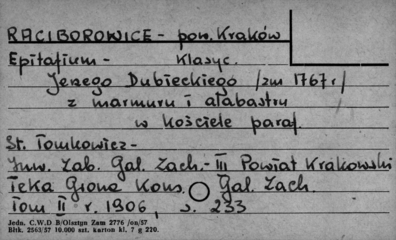 RACIBOROWICE - pow. Kraków
Epitafium - Klasyc.
Jerzego Dubieckiego /zm 1767 r/
z marmuru i alabastru
w kościele paraf.
St. Tomkowicz -
Inw. Zab. Gal. Zach. - III Powiat Krakowski
Teka Grona Kons. Gal. Zach.
Tom II r. 1906, s. 233
Jedn. C.W.D B/Olsztyn Zam 2776 /on/57
Bltk. 2563/57 10.000 szt. karton kl. 7 g 220.